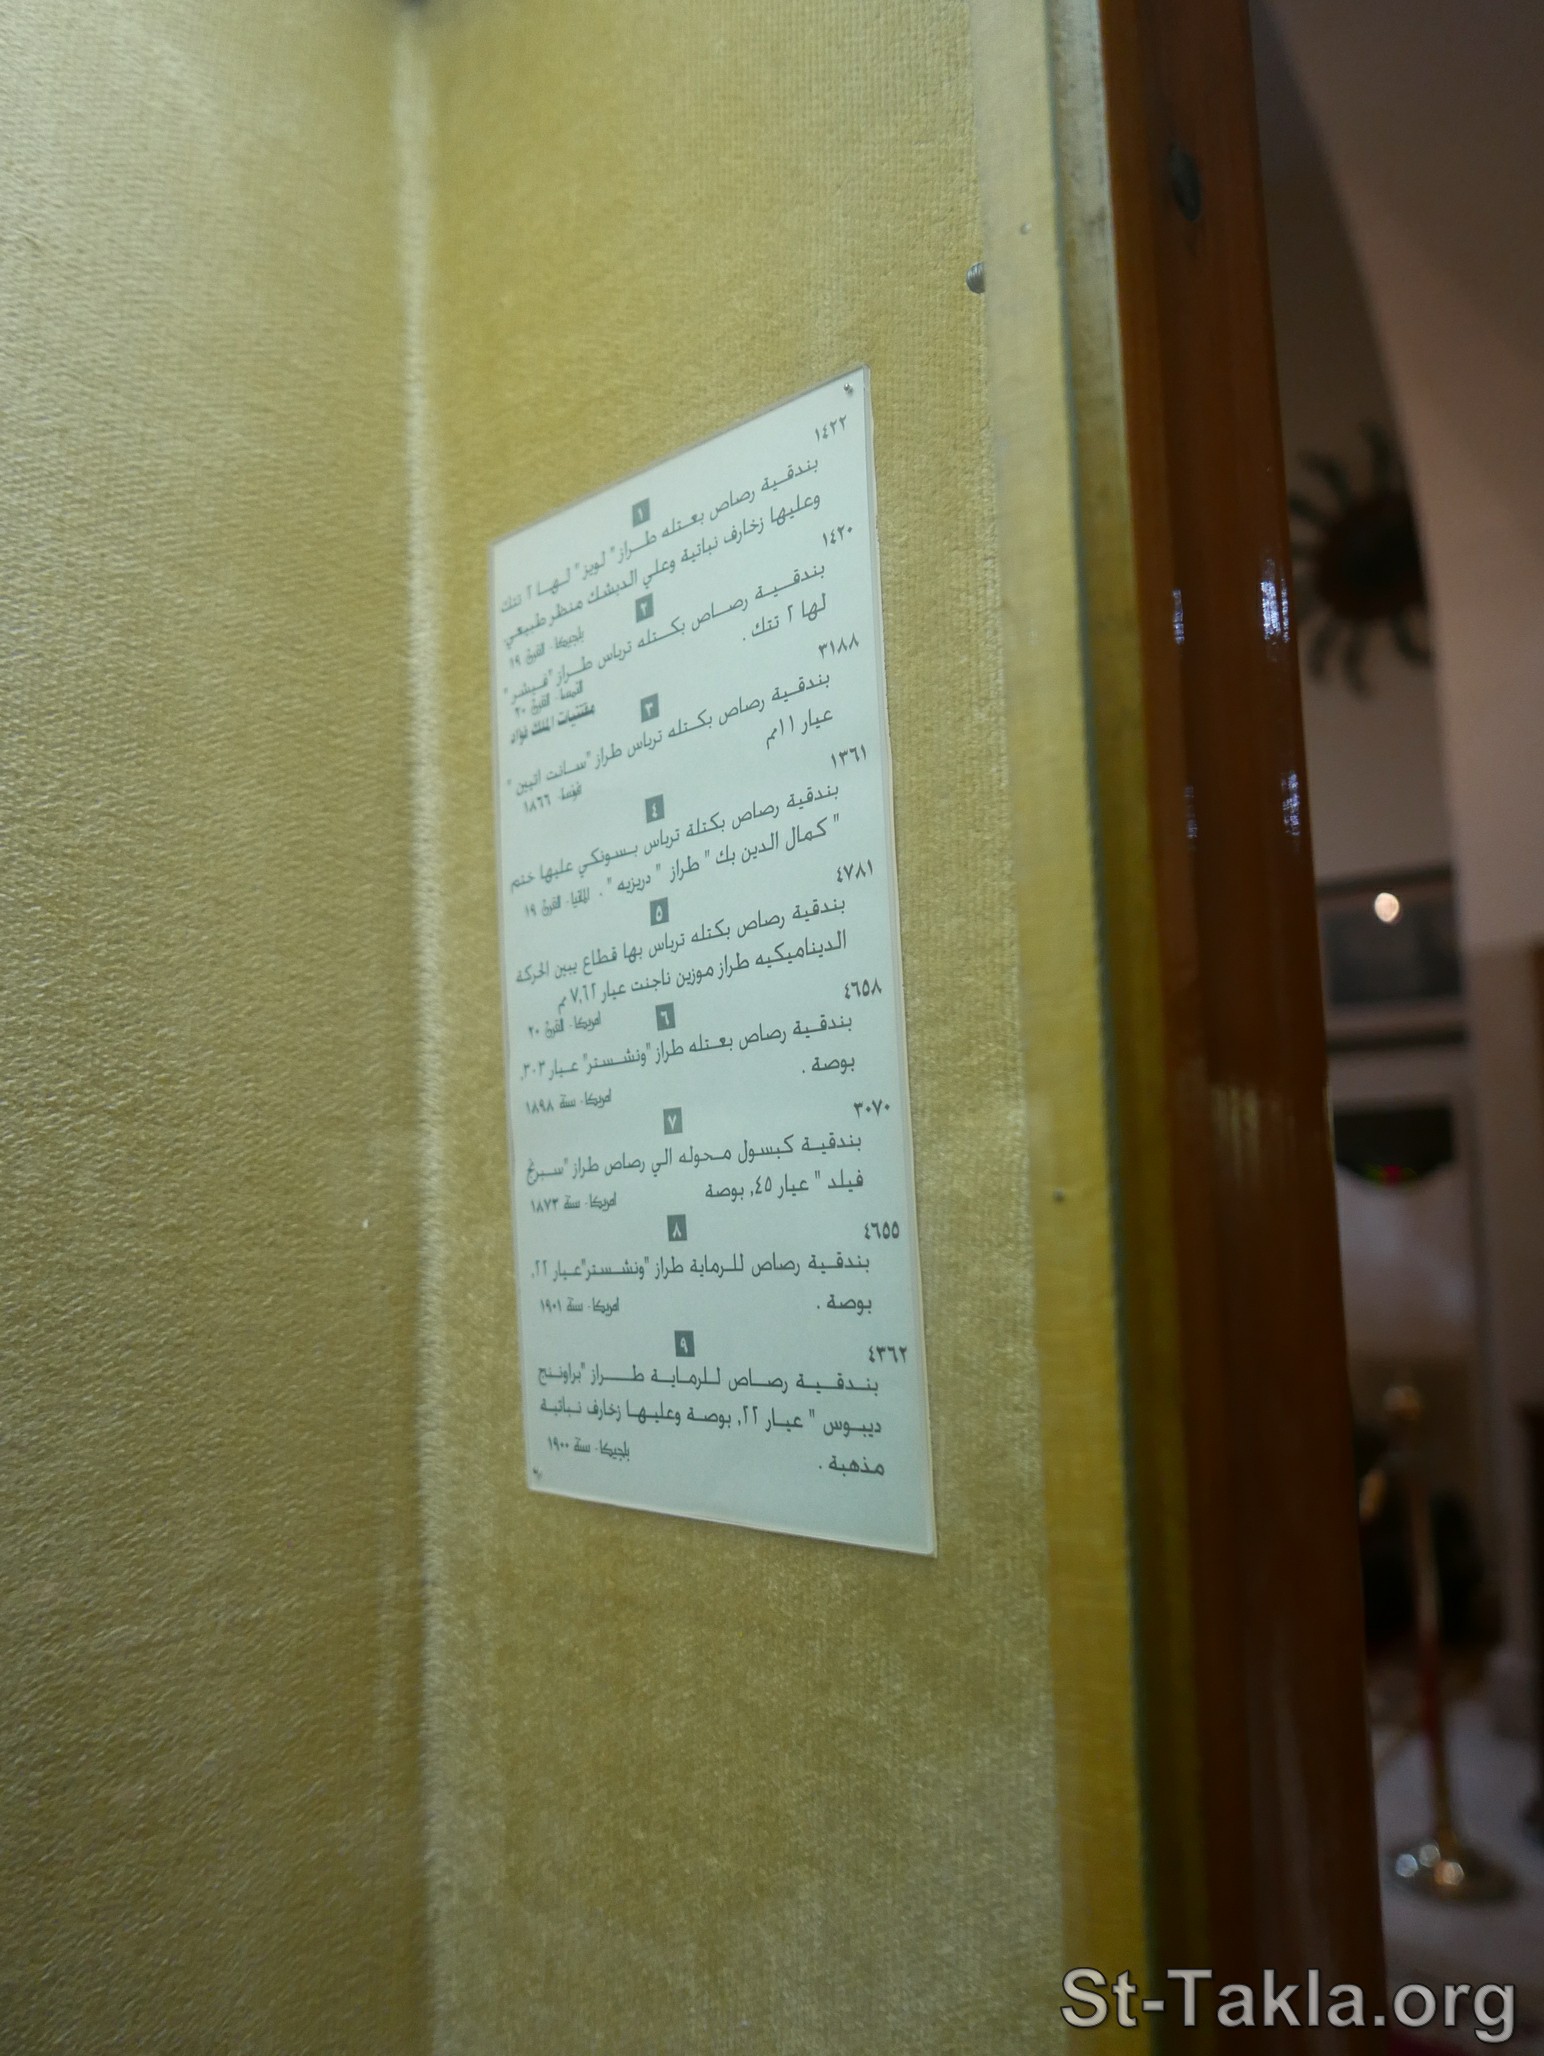 ١٤٢٢
١
بندقية رصاص بعتله طراز " لويز " لها ٢ تتك
وعليها زخارف نباتية وعلي الدبشك منظر طبيعي
بلجيكا - القرن ١٩
١٤٢٠
٢
بندقية رصاص بكتله ترباس طراز "فيشر"
لها ٢ تتك .
النمسا - القرن ٢٠
مقتنيات الملك فؤاد
٣١٨٨
٣
بندقية رصاص بكتله ترباس طراز "سانت اتيين "
عيار ١١مم
فرنسا - ١٨٦٦
١٣٦١
٤
بندقية رصاص بكتلة ترباس بسونكي عليها ختم
" كمال الدين بك " طراز " دريزيه " . المانيا - القرن ١٩
٤٧٨١
٥
بندقية رصاص بكتله ترباس بها قطاع يبين الحركة
الديناميكيه طراز موزين ناجنت عيار ٧,٦٢ مم
امريكا - القرن ٢٠
٤٦٥٨
٦
بندقية رصاص بعتله طراز "ونشستر" عيار ٣٠٣,
بوصة .
امريكا - سنة ١٨٩٨
٣٠٧٠
٧
بندقية كبسول محوله الي رصاص طراز "سبرنج
فيلد " عيار ٤٥, بوصة
امريكا - سنة ١٨٧٣
٤٦٥٥
٨
بندقية رصاص للرماية طراز "ونشستر"عيار ٢٢,
بوصة .
امريكا - سنة ١٩٠١
٤٣٦٢
٩
بندقية رصاص للرماية طراز "براوننج
ديبوس " عيار ٢٢, بوصة وعليها زخارف نباتية
مذهبة .
بلجيكا - سنة ١٩٠٠
St-Takla.org